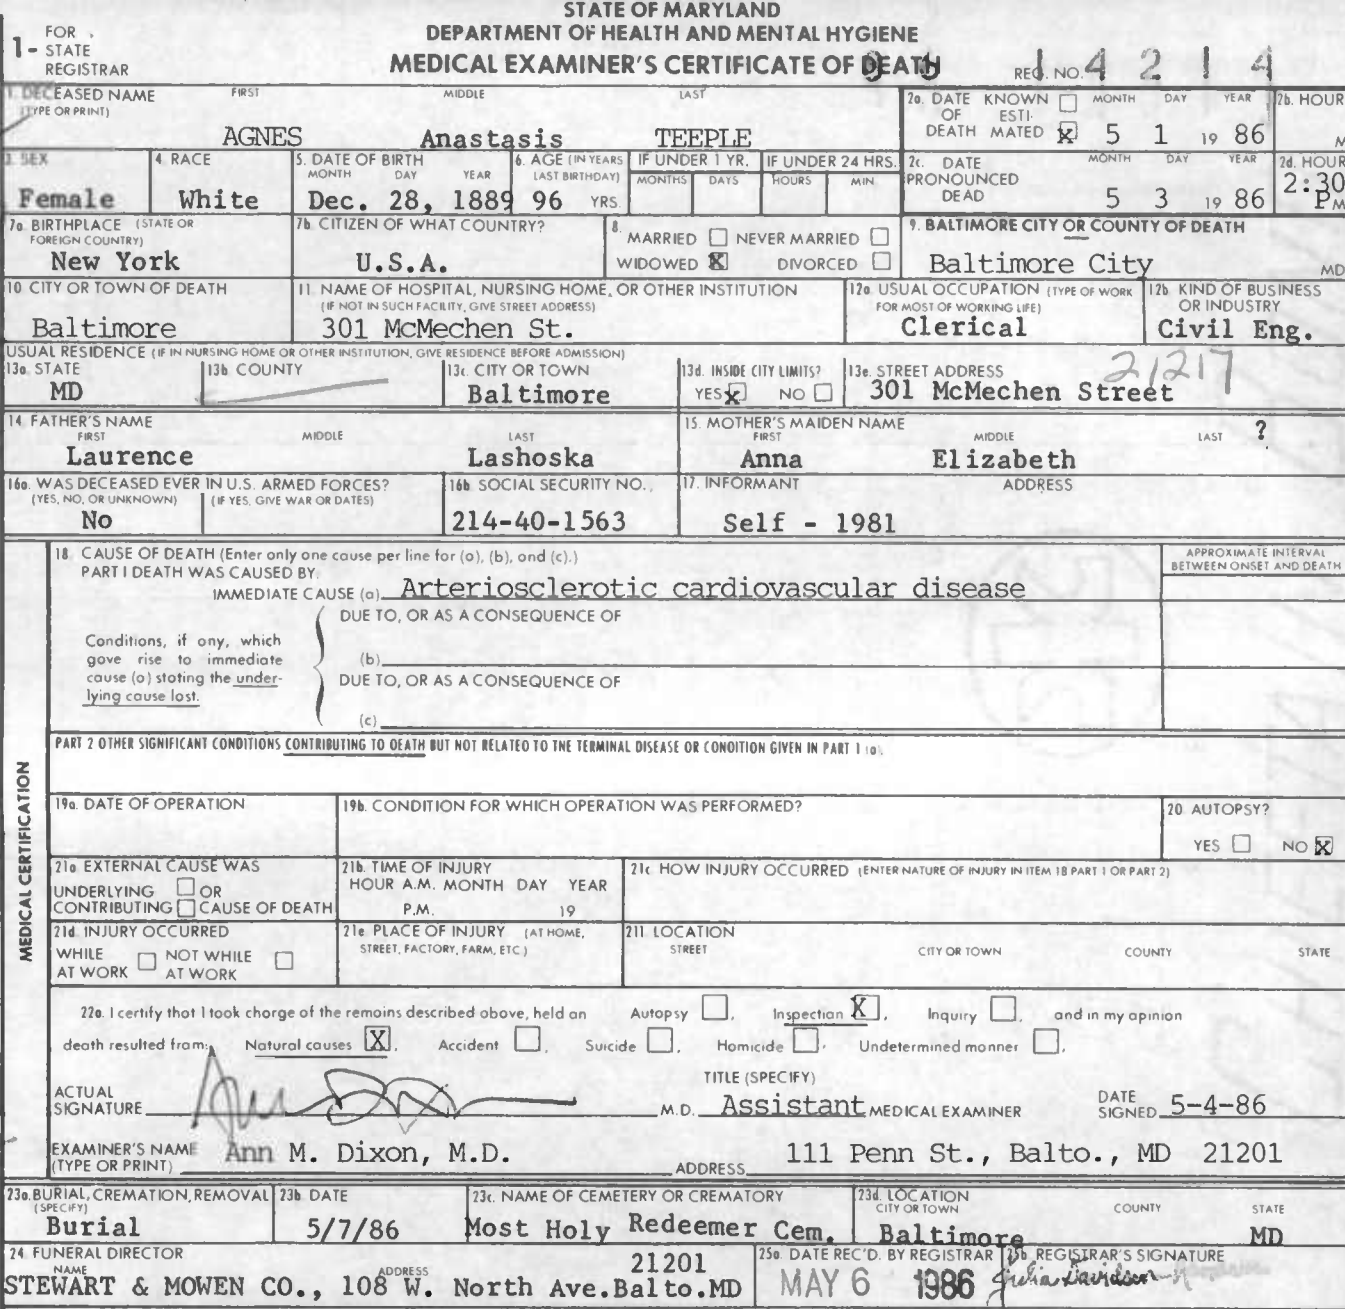 STATE OF MARYLAND
DEPARTMENT OF HEALTH AND MENTAL HYGIENE
MEDICAL EXAMINER'S CERTIFICATE OF DEATH
1- FOR STATE REGISTRAR
REG. NO. 4 2 1 4
1. DECEASED NAME (TYPE OR PRINT) FIRST MIDDLE LAST
AGNES Anastasis TEEPLE
2a. DATE OF DEATH KNOWN ☐ ESTIMATED ☒ MONTH DAY YEAR
5 1 19 86
2b. HOUR M
3. SEX
Female
4. RACE
White
5. DATE OF BIRTH MONTH DAY YEAR
Dec. 28, 1889
6. AGE (IN YEARS LAST BIRTHDAY)
96 YRS.
IF UNDER 1 YR. MONTHS DAYS
IF UNDER 24 HRS. HOURS MIN.
2c. DATE PRONOUNCED DEAD MONTH DAY YEAR
5 3 19 86
2d. HOUR
2:30 PM
7a. BIRTHPLACE (STATE OR FOREIGN COUNTRY)
New York
7b. CITIZEN OF WHAT COUNTRY?
U.S.A.
8. MARRIED ☐ NEVER MARRIED ☐
WIDOWED ☒ DIVORCED ☐
9. BALTIMORE CITY OR COUNTY OF DEATH
Baltimore City MD
10. CITY OR TOWN OF DEATH
Baltimore
11. NAME OF HOSPITAL, NURSING HOME, OR OTHER INSTITUTION
(IF NOT IN SUCH FACILITY, GIVE STREET ADDRESS)
301 McMechen St.
12a. USUAL OCCUPATION (TYPE OF WORK FOR MOST OF WORKING LIFE)
Clerical
12b. KIND OF BUSINESS OR INDUSTRY
Civil Eng.
USUAL RESIDENCE (IF IN NURSING HOME OR OTHER INSTITUTION, GIVE RESIDENCE BEFORE ADMISSION)
13a. STATE
MD
13b. COUNTY
13c. CITY OR TOWN
Baltimore
13d. INSIDE CITY LIMITS?
YES ☒ NO ☐
13e. STREET ADDRESS
21217
301 McMechen Street
14. FATHER'S NAME FIRST MIDDLE LAST
Laurence Lashoska
15. MOTHER'S MAIDEN NAME FIRST MIDDLE LAST
Anna Elizabeth ?
16a. WAS DECEASED EVER IN U.S. ARMED FORCES?
(YES, NO, OR UNKNOWN) (IF YES, GIVE WAR OR DATES)
No
16b. SOCIAL SECURITY NO.
214-40-1563
17. INFORMANT ADDRESS
Self - 1981
MEDICAL CERTIFICATION
18. CAUSE OF DEATH (Enter only one cause per line for (a), (b), and (c).)
PART I DEATH WAS CAUSED BY:
IMMEDIATE CAUSE (a) Arteriosclerotic cardiovascular disease
APPROXIMATE INTERVAL BETWEEN ONSET AND DEATH
DUE TO, OR AS A CONSEQUENCE OF
Conditions, if any, which gave rise to immediate cause (a) stating the underlying cause last.
(b)
DUE TO, OR AS A CONSEQUENCE OF
(c)
PART 2 OTHER SIGNIFICANT CONDITIONS CONTRIBUTING TO DEATH BUT NOT RELATED TO THE TERMINAL DISEASE OR CONDITION GIVEN IN PART 1 (a).
19a. DATE OF OPERATION
19b. CONDITION FOR WHICH OPERATION WAS PERFORMED?
20. AUTOPSY?
YES ☐ NO ☒
21a. EXTERNAL CAUSE WAS
UNDERLYING ☐ OR
CONTRIBUTING ☐ CAUSE OF DEATH
21b. TIME OF INJURY
HOUR A.M. MONTH DAY YEAR
P.M. 19
21c. HOW INJURY OCCURRED (ENTER NATURE OF INJURY IN ITEM 18 PART 1 OR PART 2)
21d. INJURY OCCURRED
WHILE AT WORK ☐ NOT WHILE AT WORK ☐
21e. PLACE OF INJURY (AT HOME, STREET, FACTORY, FARM, ETC.)
21f. LOCATION
STREET CITY OR TOWN COUNTY STATE
22a. I certify that I took charge of the remains described above, held an Autopsy ☐, Inspection ☒, Inquiry ☐, and in my opinion
death resulted from: Natural causes ☒, Accident ☐, Suicide ☐, Homicide ☐, Undetermined manner ☐,
ACTUAL SIGNATURE M.D.
TITLE (SPECIFY)
Assistant MEDICAL EXAMINER
DATE SIGNED 5-4-86
EXAMINER'S NAME (TYPE OR PRINT) Ann M. Dixon, M.D.
ADDRESS 111 Penn St., Balto., MD 21201
23a. BURIAL, CREMATION, REMOVAL (SPECIFY)
Burial
23b. DATE
5/7/86
23c. NAME OF CEMETERY OR CREMATORY
Most Holy Redeemer Cem.
23d. LOCATION CITY OR TOWN COUNTY STATE
Baltimore MD
24. FUNERAL DIRECTOR
NAME ADDRESS 21201
STEWART & MOWEN CO., 108 W. North Ave. Balto. MD
25a. DATE REC'D. BY REGISTRAR
MAY 6 1986
25b. REGISTRAR'S SIGNATURE
Julia Davidson